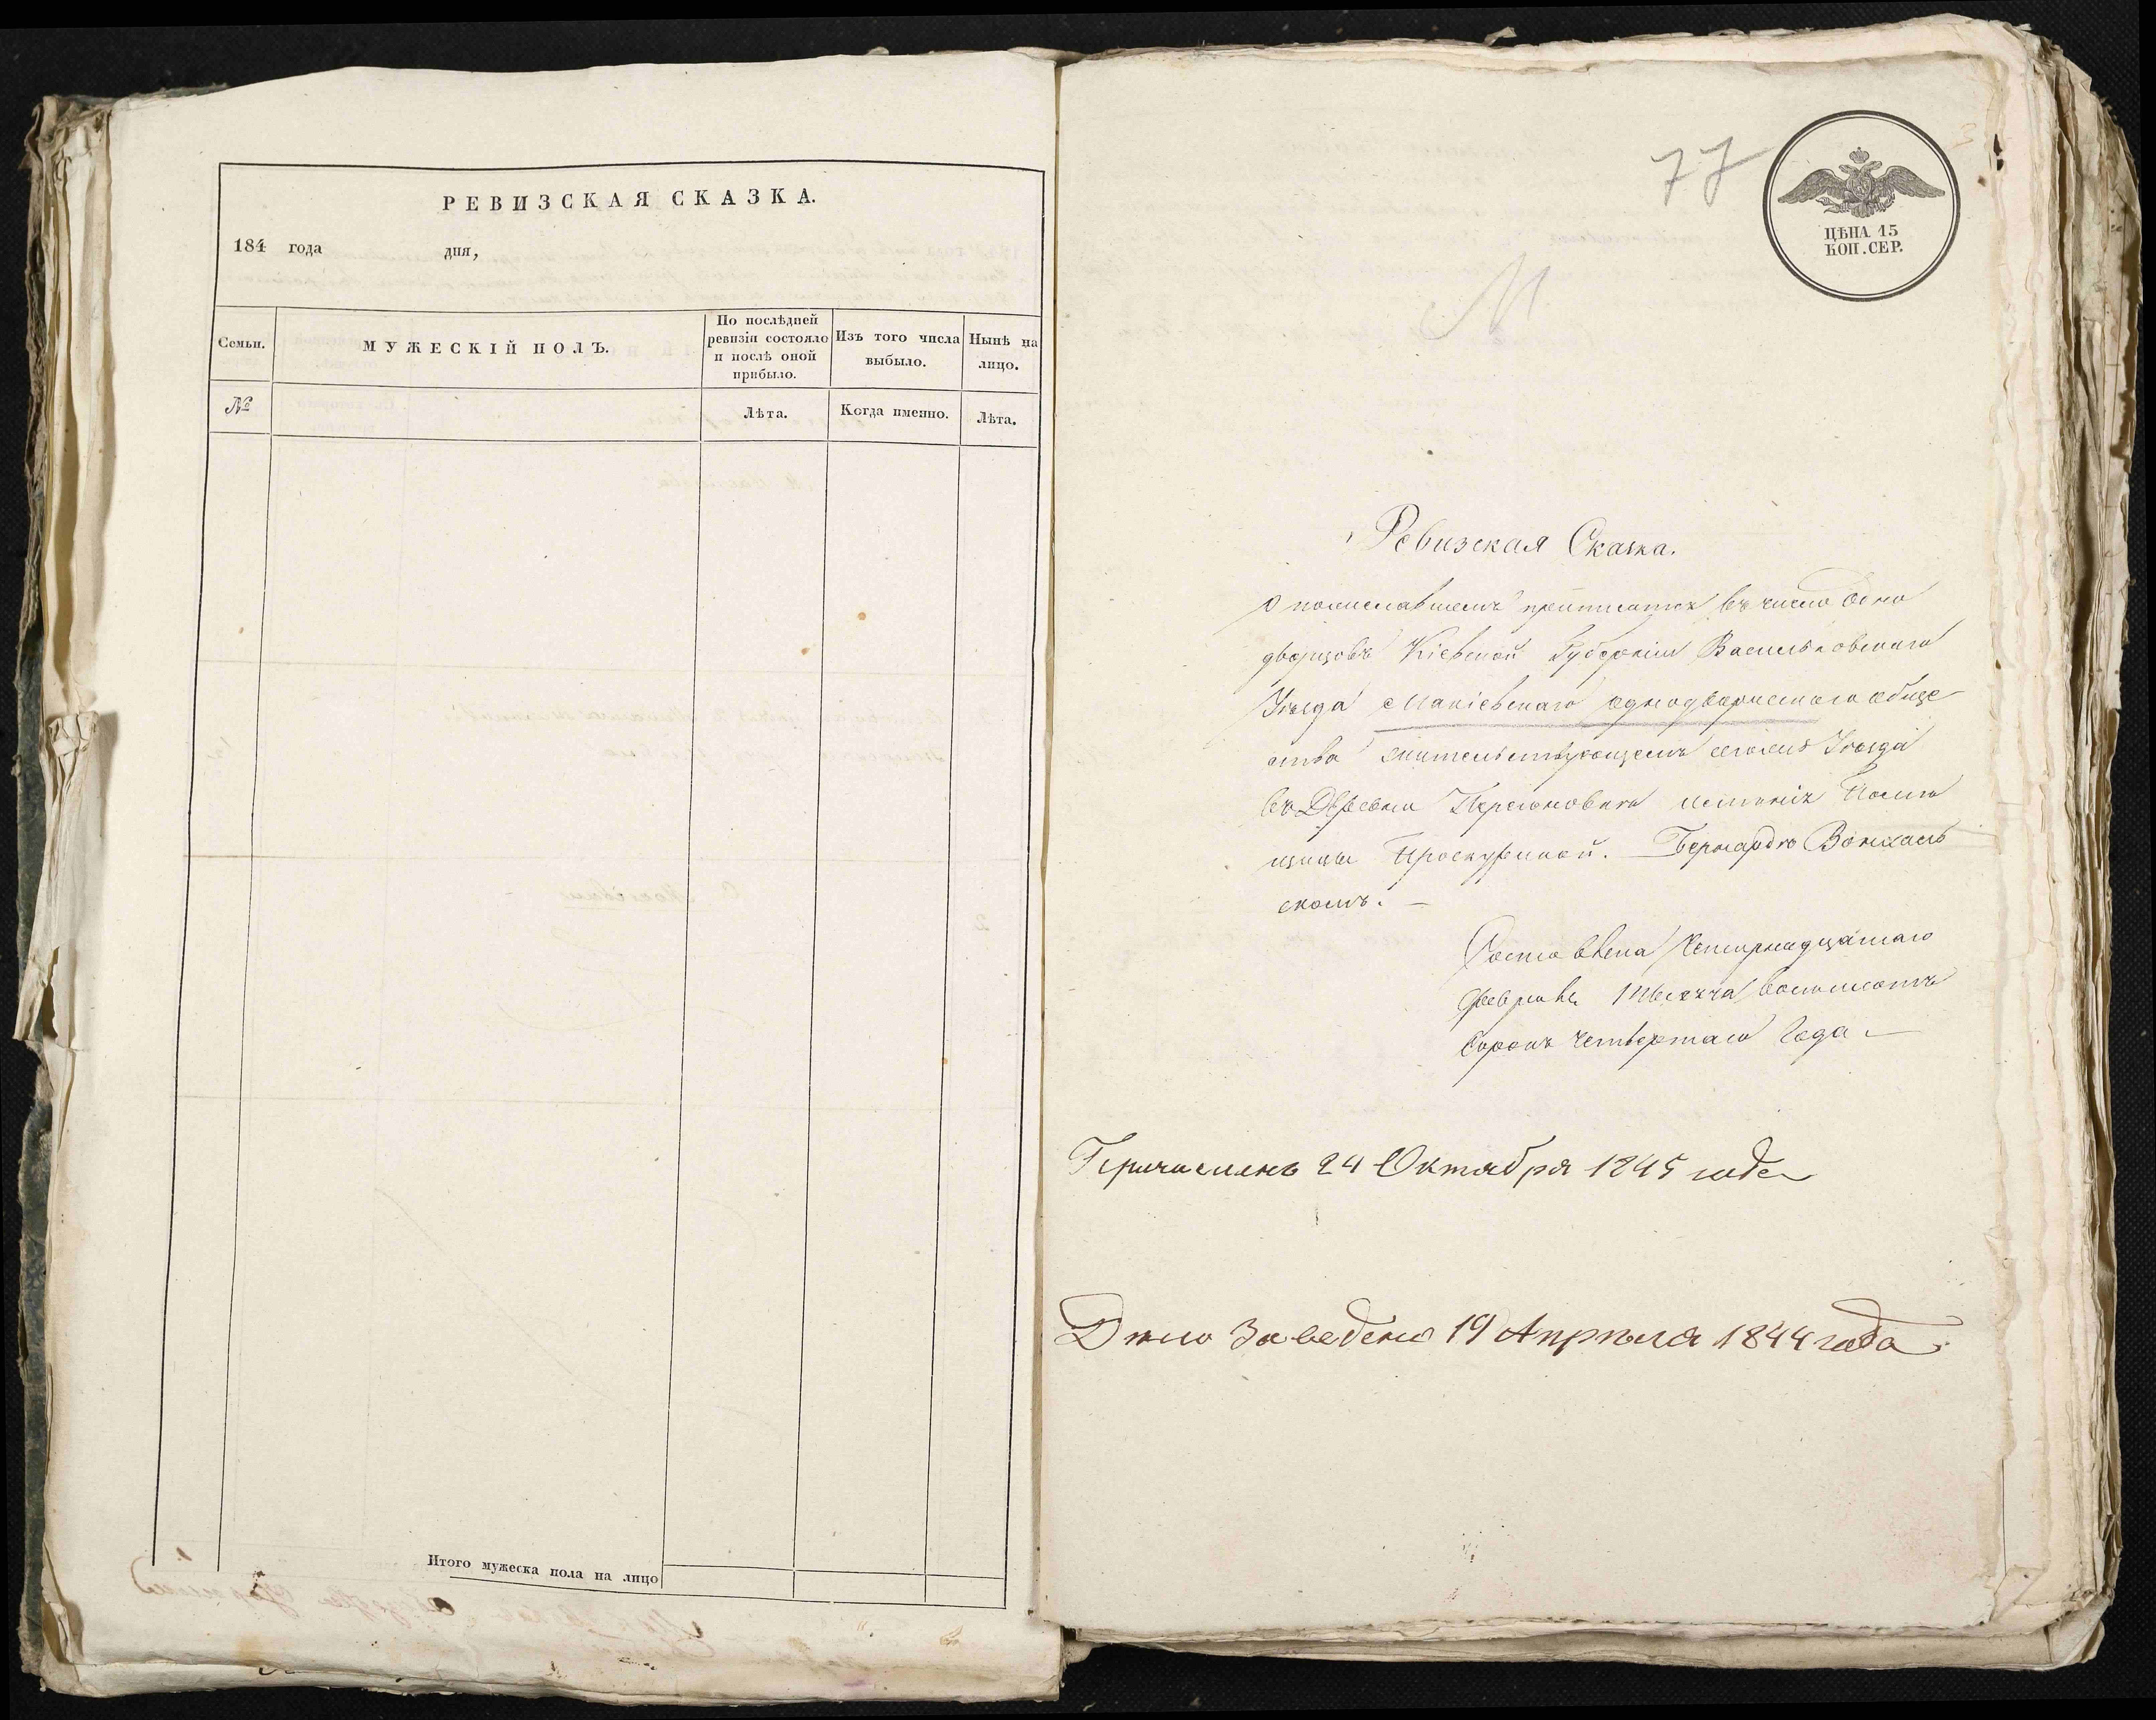 РЕВИЗСКАЯ СКАЗКА.
184 года дня,
Семьи.
МУЖЕСКІЙ ПОЛЪ.
По послѣдней
ревизіи состояло
и послѣ оной
прибыло.
Изъ того числа
выбыло.
Нынѣ на
лицо.
№
Лѣта.
Когда именно.
Лѣта.
Итого мужеска пола на лицо
77
ЦѢНА 15
КОП. СЕР.
М
Ревизская Сказка.
О пожелавшемъ приписатся въ число одно
дворцовъ Кіевской Губерніи Васильковскаго
Уѣзда Макіевскаго однодворческаго обще
ства жительствующемъ тогожъ Уѣзда
въ Деревни имѣнія Помѣ
щицы Проскурыной. Бернардѣ Вонжалъ
скомъ. –
Составлена Четырнадцатаго
февраля Тысяча восемьсотъ
Сорокъ четвертаго Года –
Причисленъ 24 Октября 1845 года
Дѣло Заведено 19 Апрѣля 1844 года.